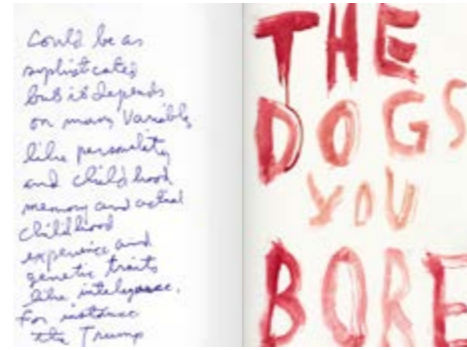 Could be as
sophisticated
but it depends
on many Variables
like personality
and childhood
memory and actual
childhood
experience and
genetic traits
like
For instance
the Trump
THE
DOGS
YOU
BORE